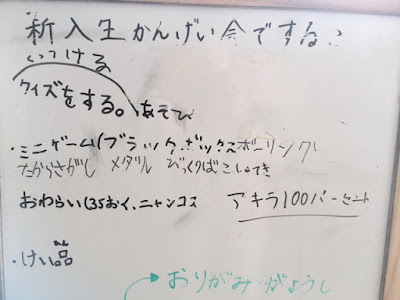 新入生かんげい会でする?
くっつける
クイズをする。あそび
・ミニゲーム(ブラックボックスボーリング
たからさがし メダル びっくりばこ
おわらい(35おく、ニャンコス アキラ100パーセント
・けい品
おりがみ・がようし